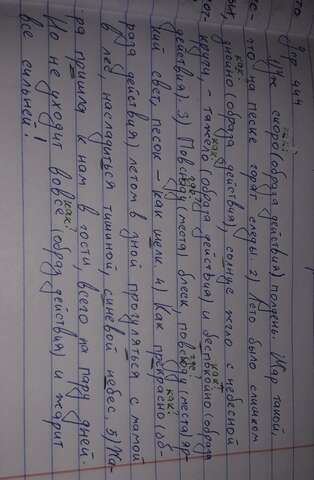 Упр 441
как?
1) Уже скоро (образа действия) полдень. Жар такой,
что на песке горят следы. 2) Лето было слишком
как?
длино (образа действия), солнце жгло с небесной
как? как?
кручи, - тяжело (образа действия) и беспокойно (образа
где? где?
действия). 3) Повсюду (места) блеск, повсюду (места) яр-
как?
кий свет, песок - как шелк. 4) Как прекрасно (об-
раза действия) летом в зной прогуляться с мамой
в лес насладиться тишиной, синевой небес. 5) Жа-
ра пришла к нам в гости, всего на пару дней.
как?
Но не уходит вовсе (образ действия) и жарит
все сильней!